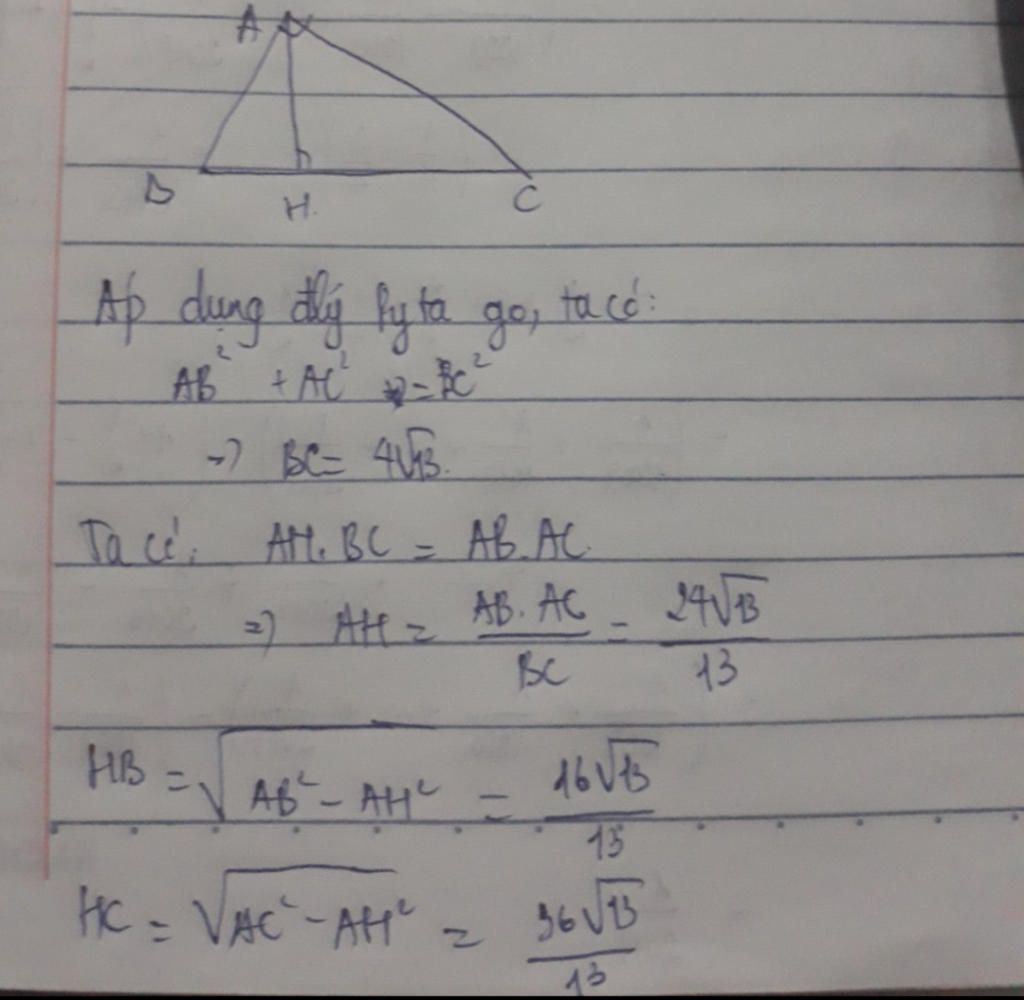 A
B H C
Áp dụng đlý Pytago, ta có:
AB² + AC² = BC²
=> BC = 4√13.
Ta có: AH.BC = AB.AC.
=> AH = AB.AC/BC = 24√13/13
HB = √(AB² - AH²) = 16√13/13
HC = √(AC² - AH²) = 36√13/13